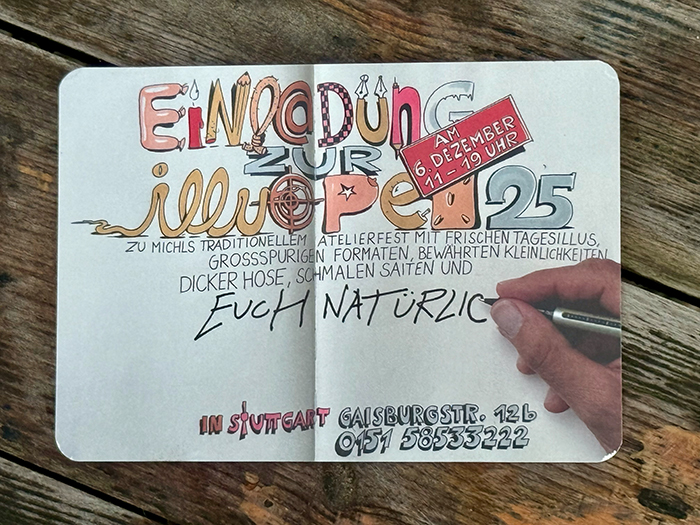 EiNL@DUNG
AM
6. DEZEMBER
11 – 19 UHR
ZUR
illuOPEN 25
ZU MICHLS TRADITIONELLEM ATELIERFEST MIT FRISCHEN TAGESILLUS,
GROSSSPURIGEN FORMATEN, BEWÄHRTEN KLEINLICHKEITEN
DICKER HOSE, SCHMALEN SAITEN UND
EUCH NATÜRLIC
IN STUTTGART GAISBURGSTR. 12b
0151 58533222